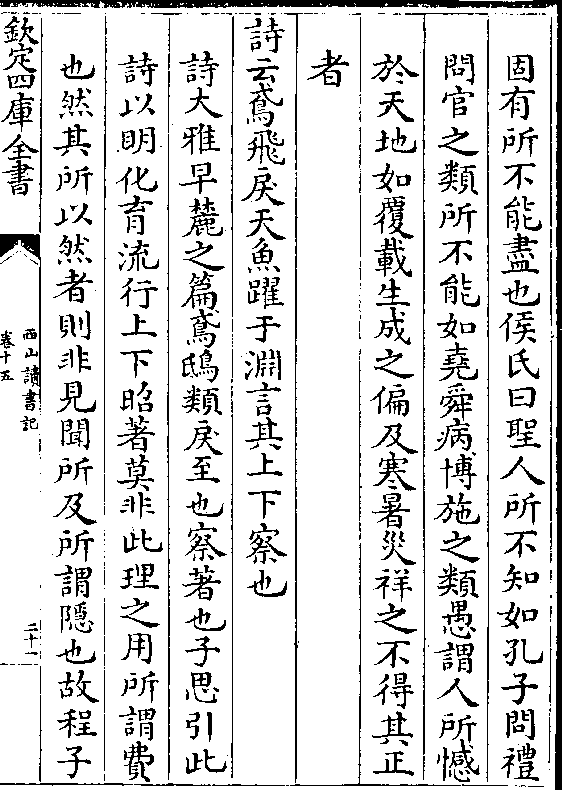 固有所不能盡也侯氏曰聖人所不知如孔子問禮
問官之類所不能如堯舜病博施之類愚謂人所憾
於天地如覆載生成之偏及寒暑災祥之不得其正
者
詩云鳶飛戾天魚躍于淵言其上下察也
詩大雅旱麓之篇鳶鴟類戾至也察著也子思引此
詩以明化育流行上下昭著莫非此理之用所謂費
也然其所以然者則非見聞所及所謂隱也故程子
欽定四庫全書
西山讀書記
卷十五
二十一